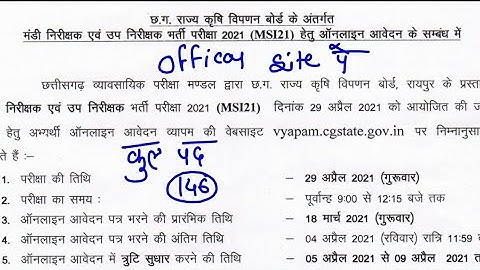 छ.ग. राज्य कृषि विपणन बोर्ड के अंतर्गत
मंडी निरीक्षक एवं उप निरीक्षक भर्ती परीक्षा 2021 (MSI21) हेतु ऑनलाइन आवेदन के सम्बंध में
site पे
छत्तीसगढ़ व्यावसायिक परीक्षा मण्डल द्वारा छ.ग. राज्य कृषि विपणन बोर्ड, रायपुर के प्रस्त
निरीक्षक एवं उप निरीक्षक भर्ती परीक्षा 2021 (MSI21) दिनांक 29 अप्रैल 2021 को आयोजित की ज
हेतु अभ्यर्थी ऑनलाइन आवेदन व्यापम की वेबसाइट vyapam.cgstate.gov.in पर निम्नानुसा
ते हैं :–
कुल पद
146
1. परीक्षा की तिथि – 29 अप्रैल 2021 (गुरूवार)
2. परीक्षा का समय : – पूर्वान्ह 9:00 से 12:15 बजे तक
3. ऑनलाइन आवेदन पत्र भरने की प्रारंभिक तिथि – 18 मार्च 2021 (गुरूवार)
4. ऑनलाइन आवेदन पत्र भरने की अंतिम तिथि – 04 अप्रैल 2021 (रविवार) रात्रि 11:59
5. ऑनलाइन आवेदन में त्रुटि सुधार करने की तिथि – 05 अप्रैल 2021 से 09 अप्रैल 2021 त